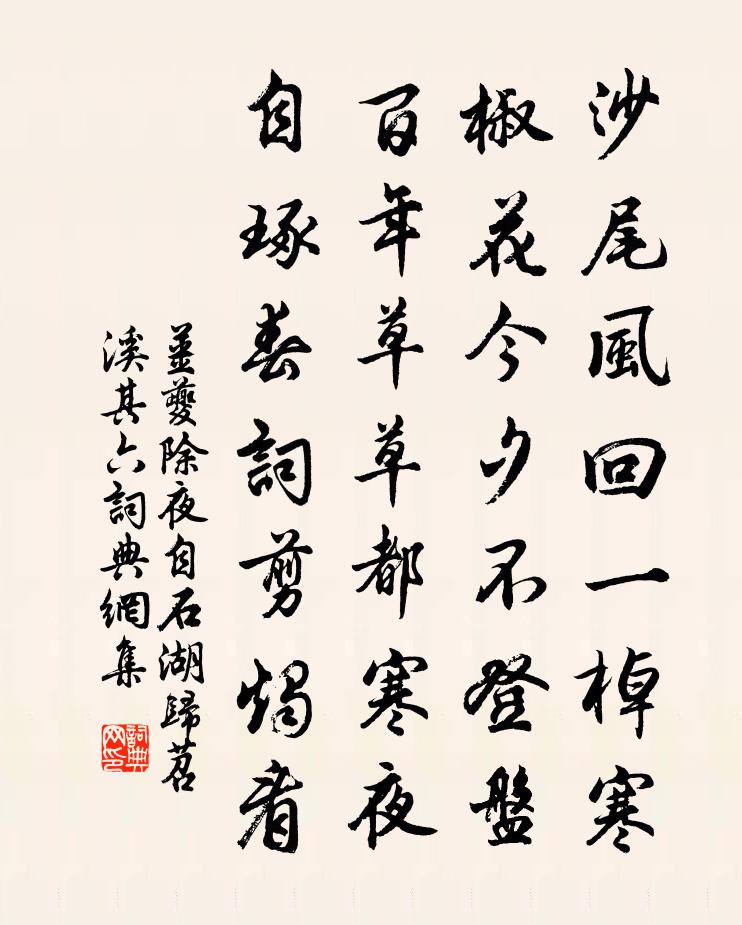 沙尾風回一棹寒
椒花今夕不登盤
百年草草都寒夜
自琢春詞剪燭看
薑夔除夜自石湖歸苕
溪其六詞典網集
詞典
网印